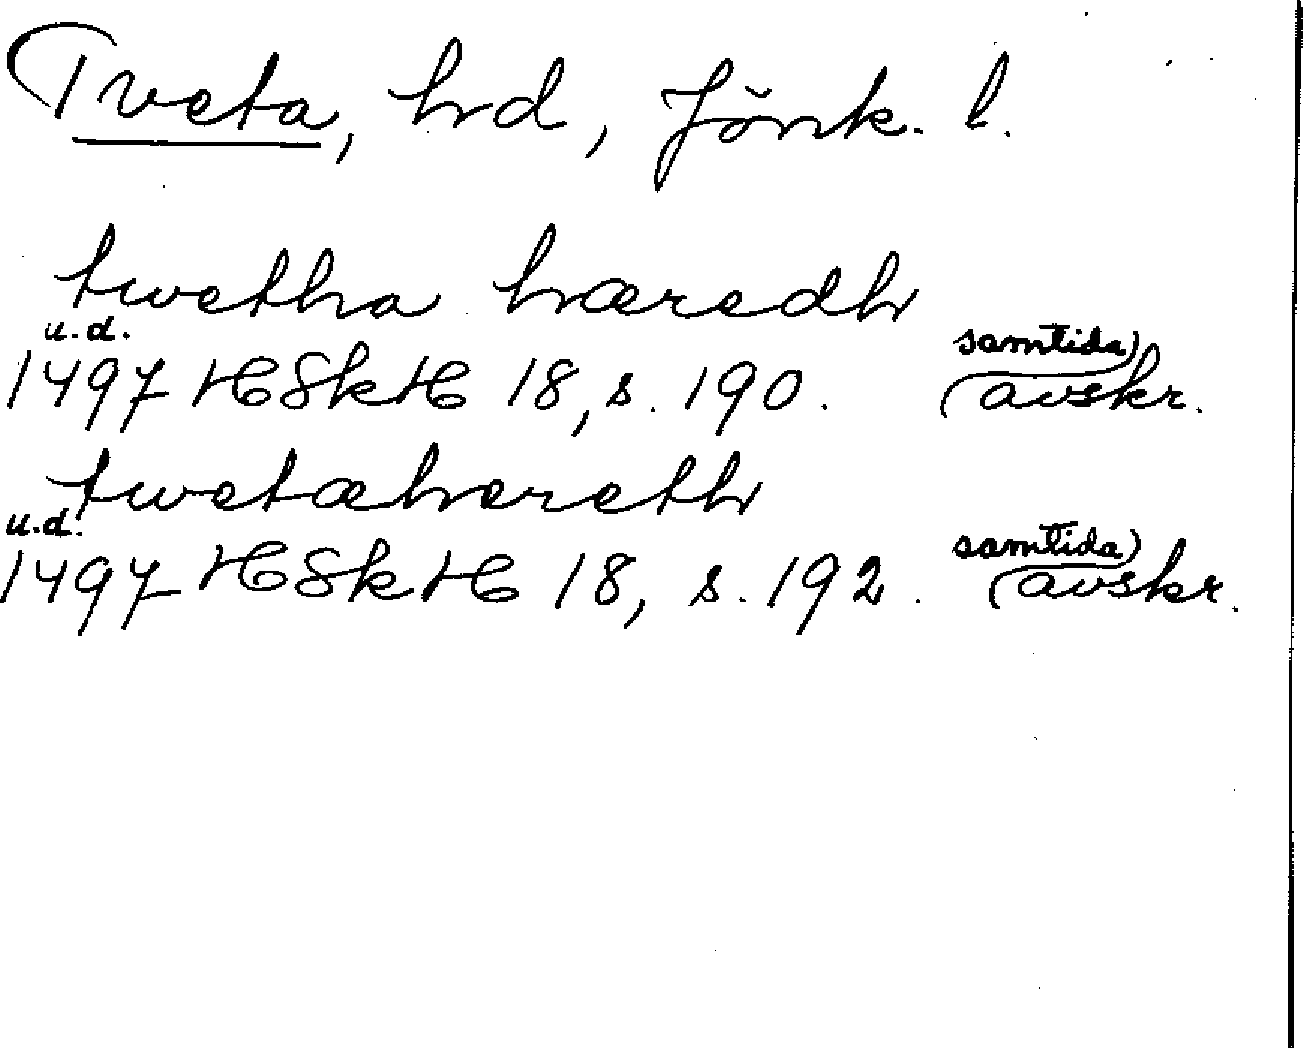 Tveta, hd, Jönk. l.
twetha hæredh
u.d. samtida)
1497 HSkH 18, s. 190. (avskr.
twetæhereth
u.d. samtida)
1497 HSkH 18, s. 192. (avskr.